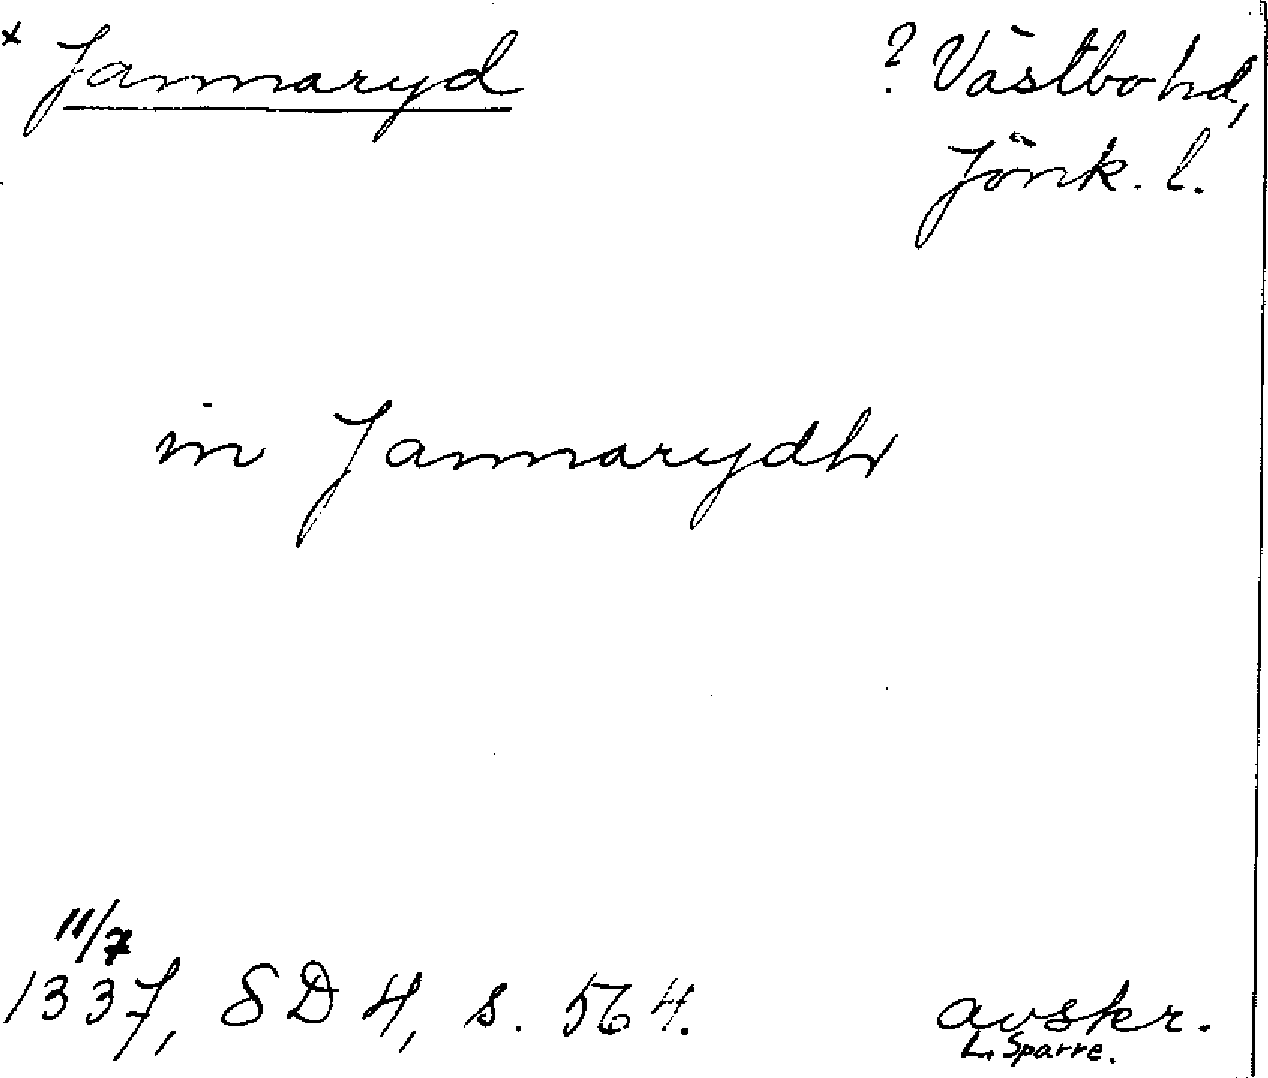 x Jannaryd
? Västbo hd,
Jönk. l.
in Jannarydh
11/7
1337, SD 4, s. 564.
avskr.
L. Sparre.